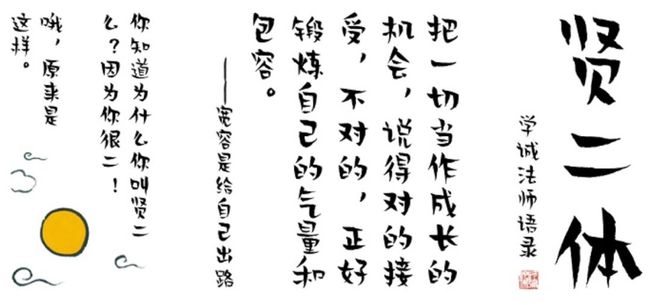 贤二体
学诚法师语录
把一切当作成长的
机会，说得对的接
受，不对的，正好
锻炼自己的气量和
包容。
——宽容是给自己出路
你知道为什么你叫贤二
么？因为你很二！
哦，原来是
这样。